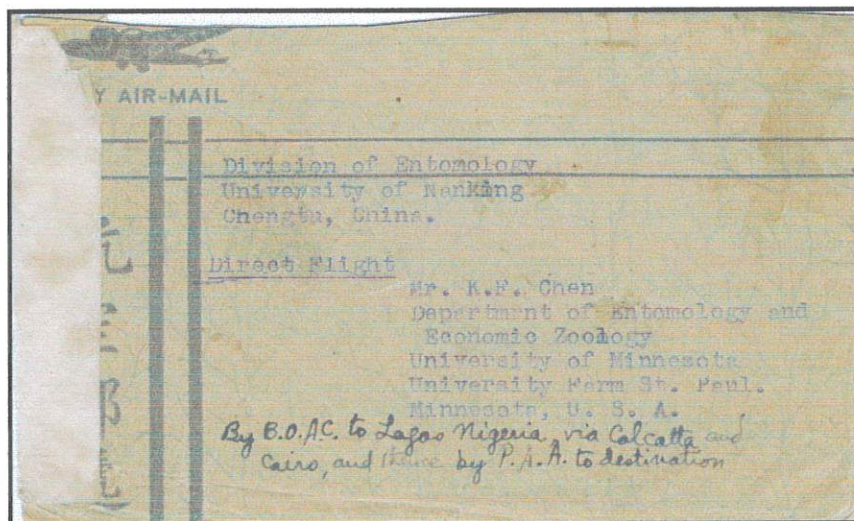 Y AIR-MAIL
Division of Entomology
University of Nanking
Chengtu, China.
Direct Flight
Mr. K.F. Chen
Department of Entomology and
Economic Zoology
University of Minnesota
University Farm St. Paul.
Minnesota, U. S. A.
By B.O.A.C. to Lagos Nigeria, via Calcatta and
Cairo, and thence by P.A.A. to destination